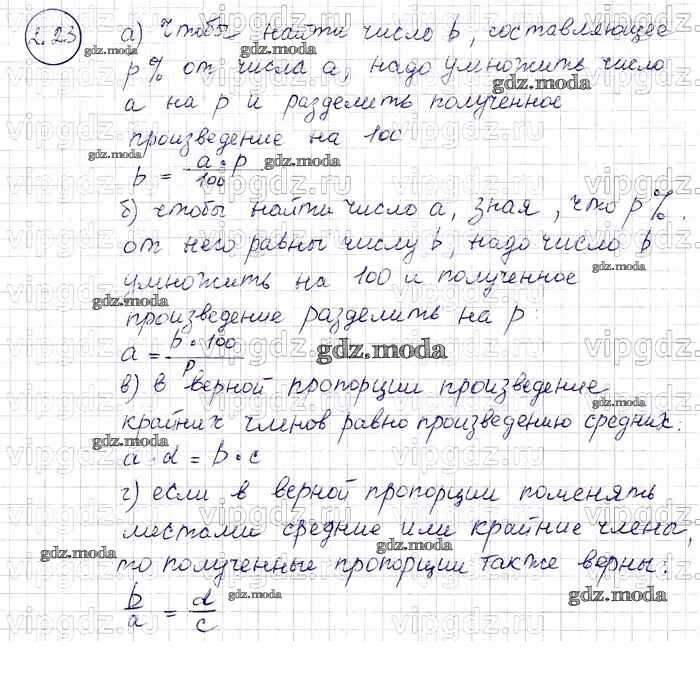 2.23
а) чтобы найти число b, составляющее
p% от числа a, надо умножить число
a на p и разделить полученное
произведение на 100
b = a · p / 100
б) чтобы найти число a, зная, что p%
от него равны числу b, надо число b
умножить на 100 и полученное
произведение разделить на p:
a = b · 100 / p
в) в верной пропорции произведение
крайних членов равно произведению средних:
a · d = b · c
г) если в верной пропорции поменять
местами средние или крайние члены,
то полученные пропорции также верны:
b/a = d/c
gdz.moda
vipgdz.ru